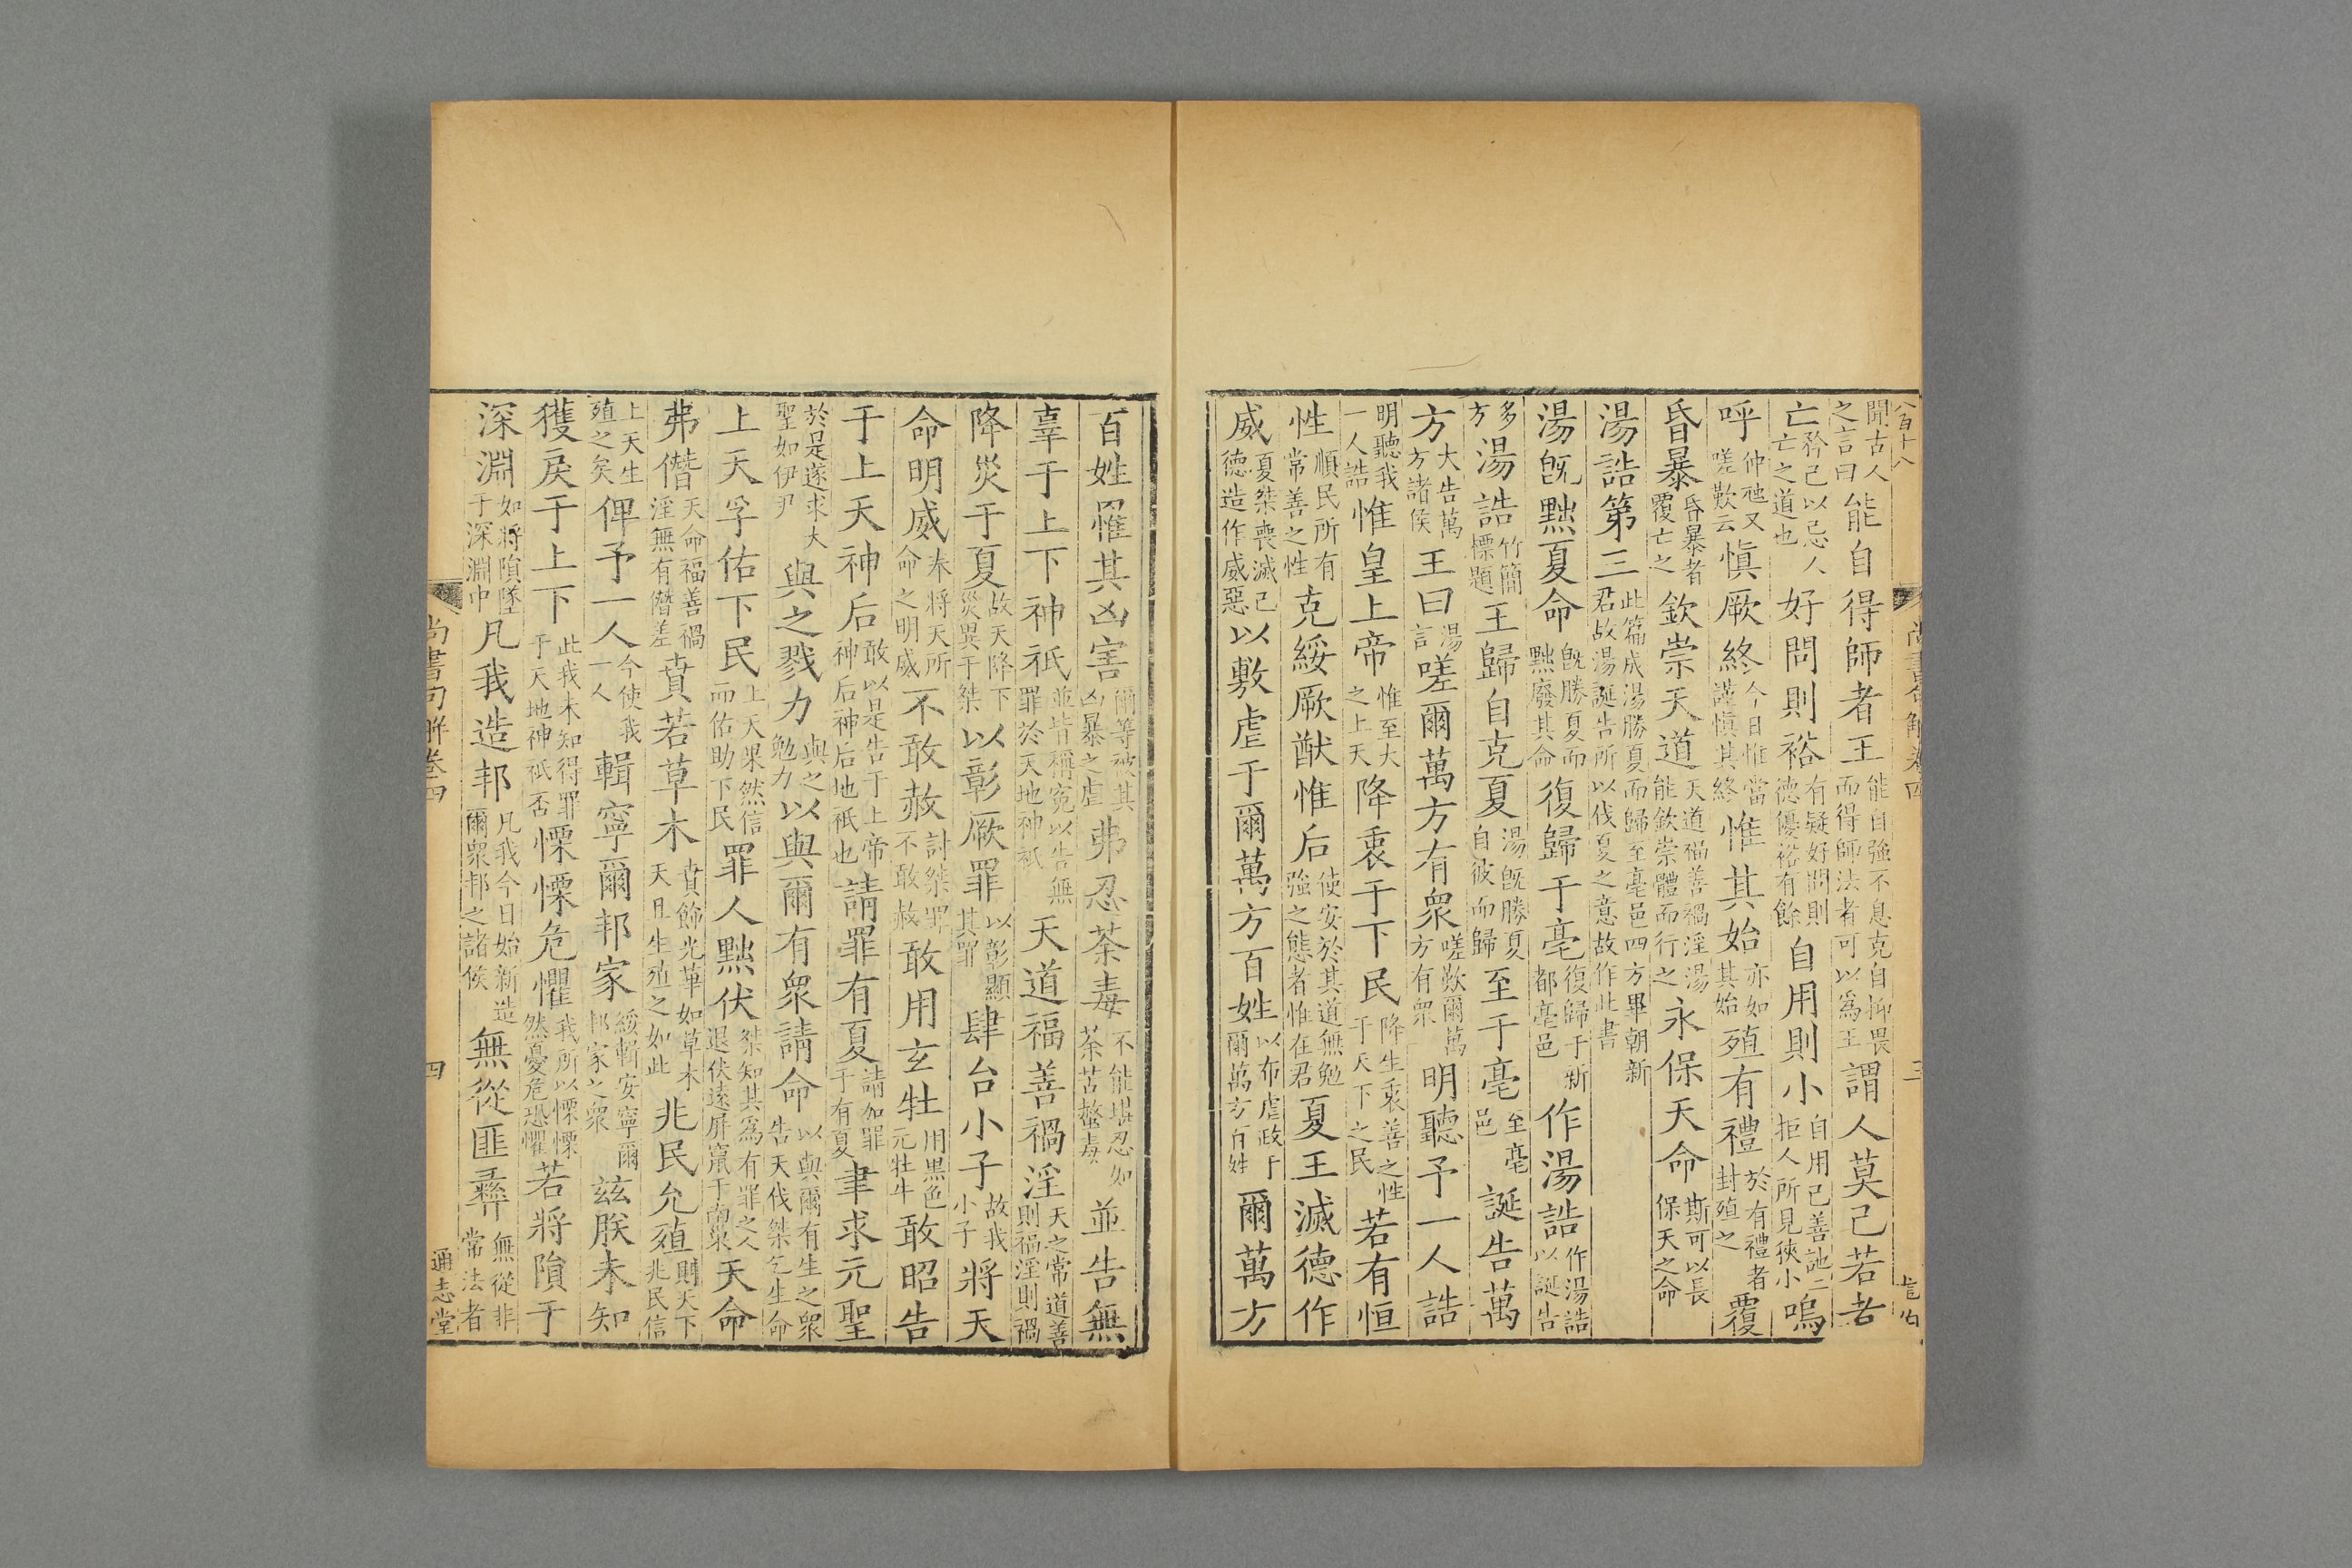 八百十八
尚書句解卷四
三
聞古人之言曰能自得師者王能自強不息克自抑畏而得師法者可以為王謂人莫己若者
亡矜己以忌人亡之道也好問則裕有疑好問則德優裕有餘自用則小自用己善訑訑拒人所見狹小嗚
呼仲虺又嗟歎云愼厥終今日惟當謹愼其終惟其始亦如其始殖有禮於有禮者封殖之覆
昏暴昏暴者覆亡之欽崇天道天道福善禍淫湯能欽崇體而行之永保天命斯可以長保天之命
湯誥第三此篇成湯勝夏而歸至亳邑四方畢朝新君故湯誕告所以伐夏之意故作此書
湯旣黜夏命旣勝夏而黜廢其命復歸于亳復歸于新都亳邑作湯誥作湯誥以誕告
多方湯誥竹簡標題王歸自克夏湯旣勝夏自彼而歸至于亳至亳邑誕告萬
方大告萬方諸侯王曰湯言嗟爾萬方有衆嗟歎爾萬方有衆明聽予一人誥
明聽我一人誥惟皇上帝惟至大之上天降衷于下民降生衷善之性于天下之民若有恒
性順民所有常善之性克綏厥猷惟后使安於其道無勉強之態者惟在君夏王滅德作
威夏桀喪滅己德造作威惡以敷虐于爾萬方百姓以布虐政于爾萬方百姓爾萬方
百姓罹其凶害爾等被其凶暴之虐弗忍荼毒不能堪忍如荼苦螫毒並告無
辜于上下神祇並皆稱寃以告無罪於天地神祇天道福善禍淫天之常道善則福淫則禍
降災于夏故天降下災異于桀以彰厥罪以彰顯其罪肆台小子故我小子將天
命明威奉將天所命之明威不敢赦討桀罪不敢赦敢用玄牡用黑色元牡牛敢昭告
于上天神后敢以是告于上帝神后神后地祇也請罪有夏請加罪于有夏聿求元聖
於是遂求大聖如伊尹與之戮力與之勉力以與爾有衆請命以與爾有生之衆告天伐桀乞生命
上天孚佑下民上天果然信而佑助下民罪人黜伏桀知其為有罪之人退伏遠屏竄于南巢天命
弗僭天命福善禍淫無有僭差賁若草木賁飾光華如草木天且生殖之如此兆民允殖則天下兆民信
上天生殖之矣俾予一人今使我一人輯寧爾邦家綏輯安寧爾邦家之衆茲朕未知
獲戾于上下此我未知得罪于天地神祇否慄慄危懼我所以慄慄然憂危恐懼若將隕于
深淵如將隕墜于深淵中凡我造邦凡我今日始新造爾衆邦之諸侯無從匪彝無從非常法者
尚書句解卷四
四
通志堂